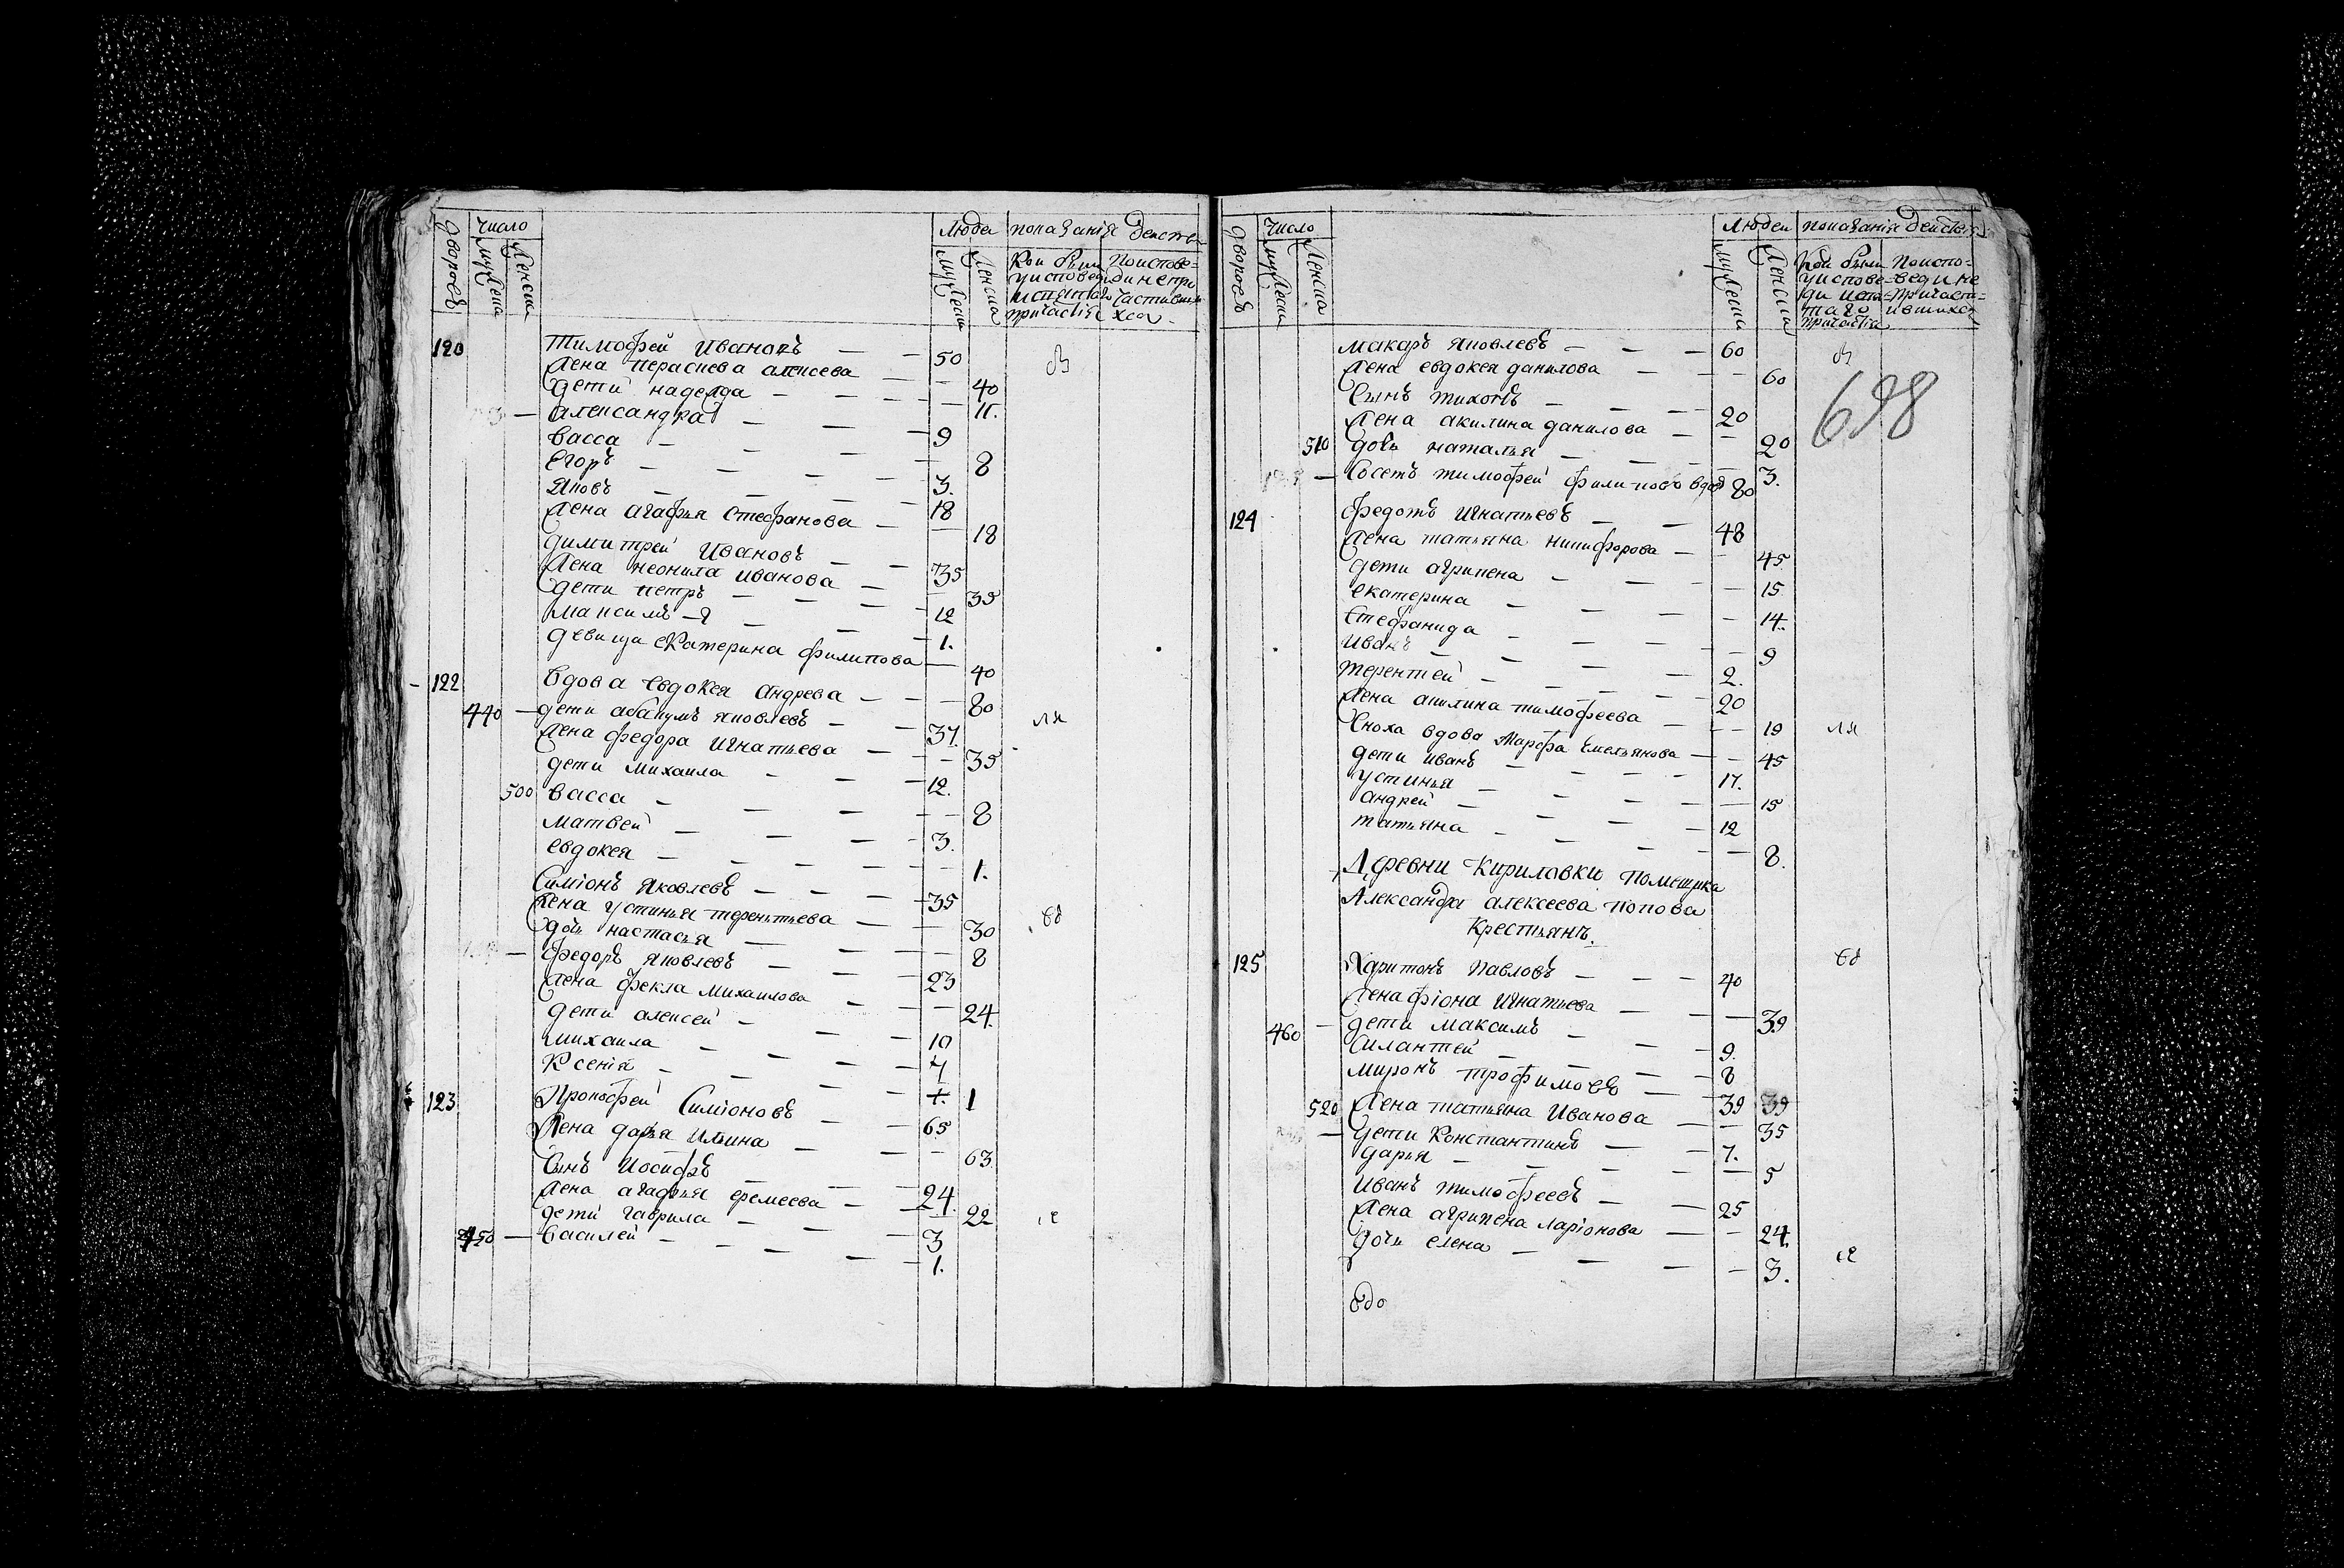 Число
Людеи показаніѧ Деиств
дворовъ
мужеска
женска
мужеска
женска
Кои были
у исповеди
и святаго
причастіѧ
По испове=
ди не при
частивши
хся
120 Тимофеи Ивановъ — — 50
Жена Параскева алексеева — — 40
Дети надежда — — — 11.
Александра — — — 9
Васса — — — 8
Егоръ — — — 3.
Яковъ — — — 18
Жена Агафья Стефанова — — 18
Димитреи Ивановъ — — 35
Жена неонила иванова — — 35
Дети петръ — — — 12
Максимъ — — 1.
девица екатерина филипова — 40
122 Вдова Евдокея Андрева — — 80
440 — дети абакумъ яковлевъ — — 37.
Жена федора Игнатьева — — 35
дети михаила — — — 12.
500 васса — — — 8
матвеи — — — 3.
евдокея — — — 1.
Симіонъ яковлевъ — — 35
Жена устинья терентьева — — 30
дочь настасья — — 8
Федоръ яковлевъ — — 23
Жена фекла михаилова — — 24.
Дети алексеи — — 10
михаила — — — 7
Ксенія — — — 1
123 Прокофеи Симіоновъ — — 65
Жена дарья Ильина — — 63
Сынъ Иосифъ — — 24.
Жена агафья еремеева — — 22
дети гаврила — — 3
450 — Василеи — — — 1.
Число
Людеи показаніѧ Деиств
дворовъ
мужеска
женска
мужеска
женска
Кои были
у испове=
ди и свя=
таго
причастіѧ
По испо=
веди не
причаст=
ившихся
698
макаръ яковлевъ — — — 60
Жена евдокея данилова — — 60
Сынъ тихонъ — — — 20
Жена акилина данилова — — 20
510 дочь наталья — — — 3.
— Соседъ тимофеи филиповъ вдов 80
124 Федотъ Игнатьевъ — — 48
Жена татьяна никифорова — — 45
дети агрипена — — — 15
екатерина — — — 14.
Стефанида — — — 9
Иванъ — — — 2.
терентеи — — — 20
Жена акилина тимофеева — — 19
Сноха вдова Марфа Емельянова — 45
дети иванъ — — — 17.
устинья — — — 15
андреи — — — 12
татьяна — — — 8.
Деревни Кириловки помещика
Александра алексеева попова
Крестьянъ.
125 Харитонъ Павловъ — — 40
Жена фіона Игнатьева — — 39
460 — дети максимъ — — 9.
Силантеи — — — 8
Миронъ трофимовъ — — 39
520 Жена татьяна Иванова — — 35
— дети Константинъ — — 7.
дарья — — — 5
Иванъ тимофеевъ — — 25
Жена агрипена ларіонова — — 24.
дочь елена — — — 3.
вдо